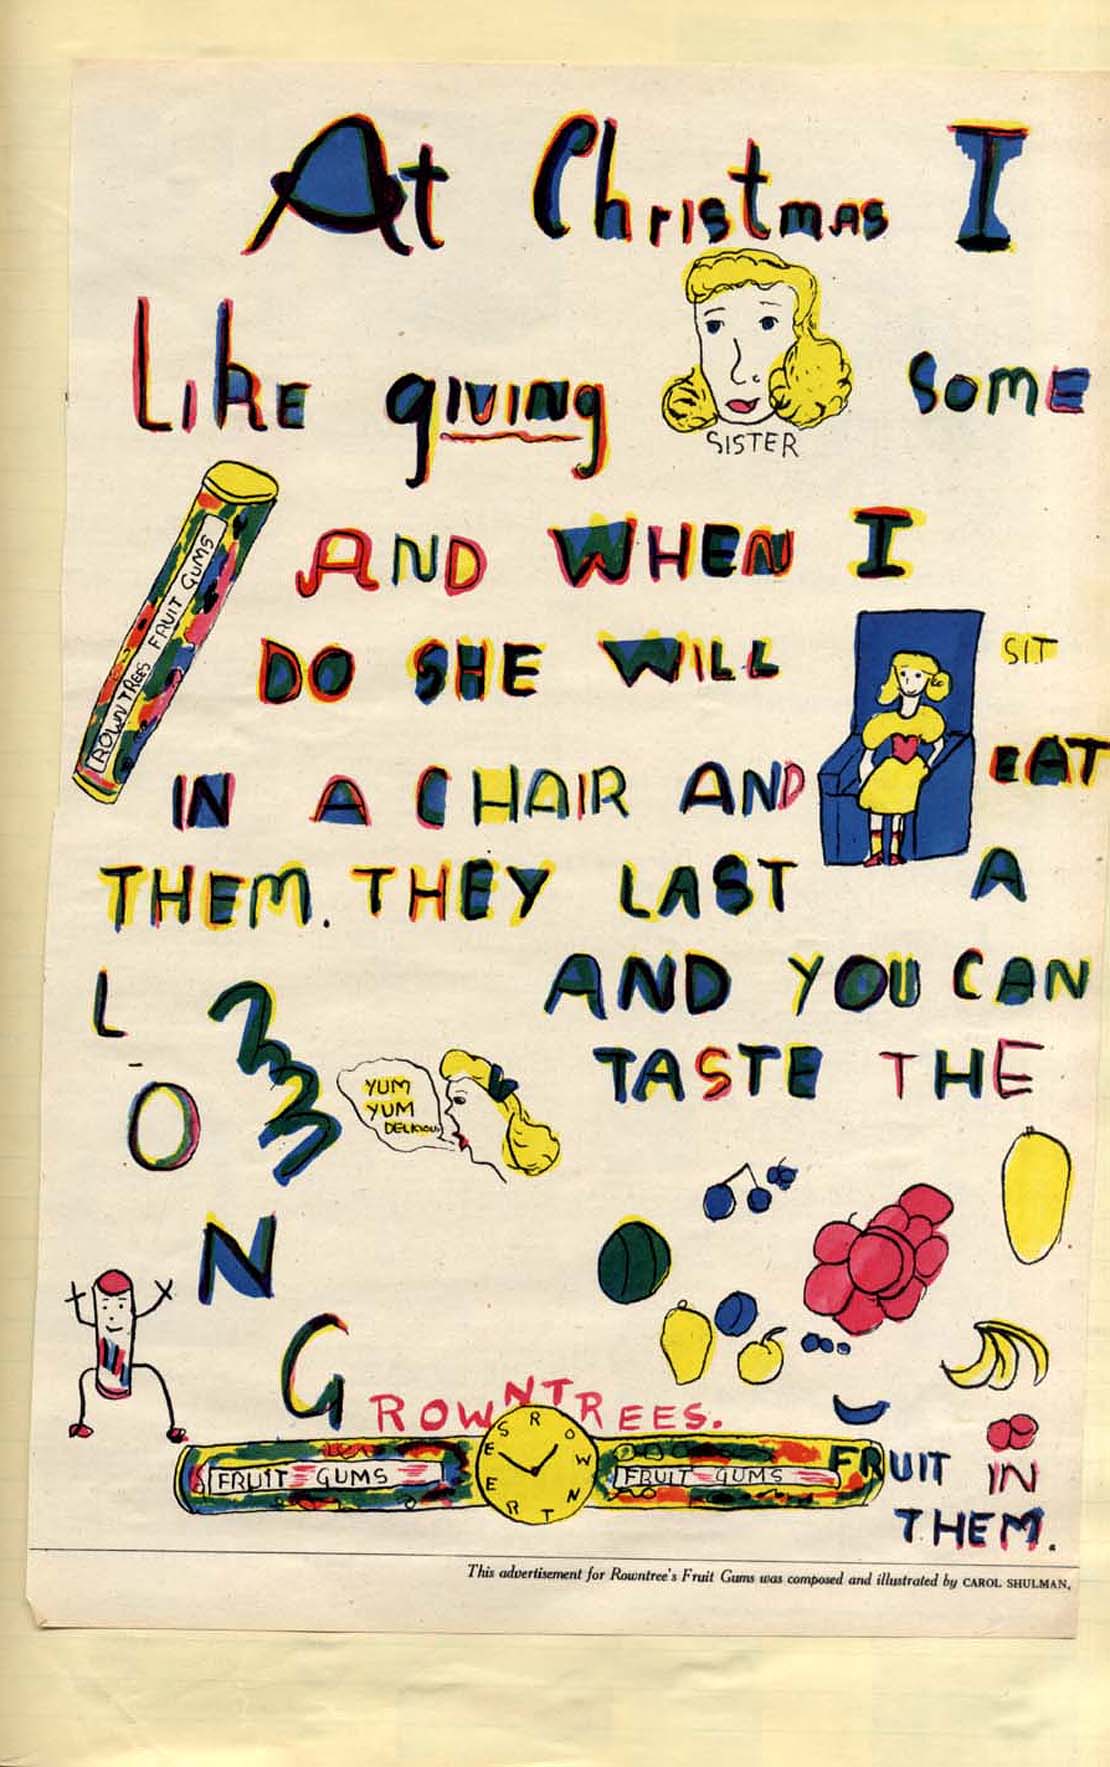 At Christmas I
LIKE giving SOME
SISTER
ROWNTREES FRUIT GUMS
AND WHEN I
DO SHE WILL SIT
IN A CHAIR AND EAT
THEM. THEY LAST A
LONG
AND YOU CAN
TASTE THE
YUM
YUM
DELICIOUS
ROWNTREES.
ROWNTREES
FRUIT GUMS
FRUIT GUMS
FRUIT IN
THEM.
This advertisement for Rowntree's Fruit Gums was composed and illustrated by CAROL SHULMAN,